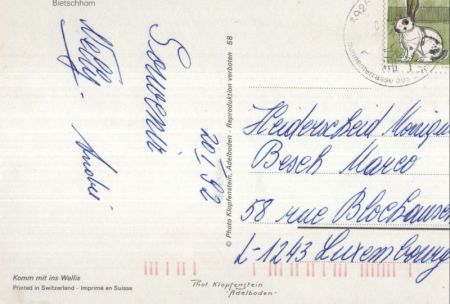 Bietschhorn
Souvenir
20.1.92
Nelly - André
58
© Photo Klopfenstein, Adelboden - Reproduktion verboten
Heiderscheid Monique
Besch Marco
58 rue Blochausen
L-1243 Luxembourg
Komm mit ins Wallis
Printed in Switzerland - Imprimé en Suisse
Phot Klopfenstein
-Adelboden-